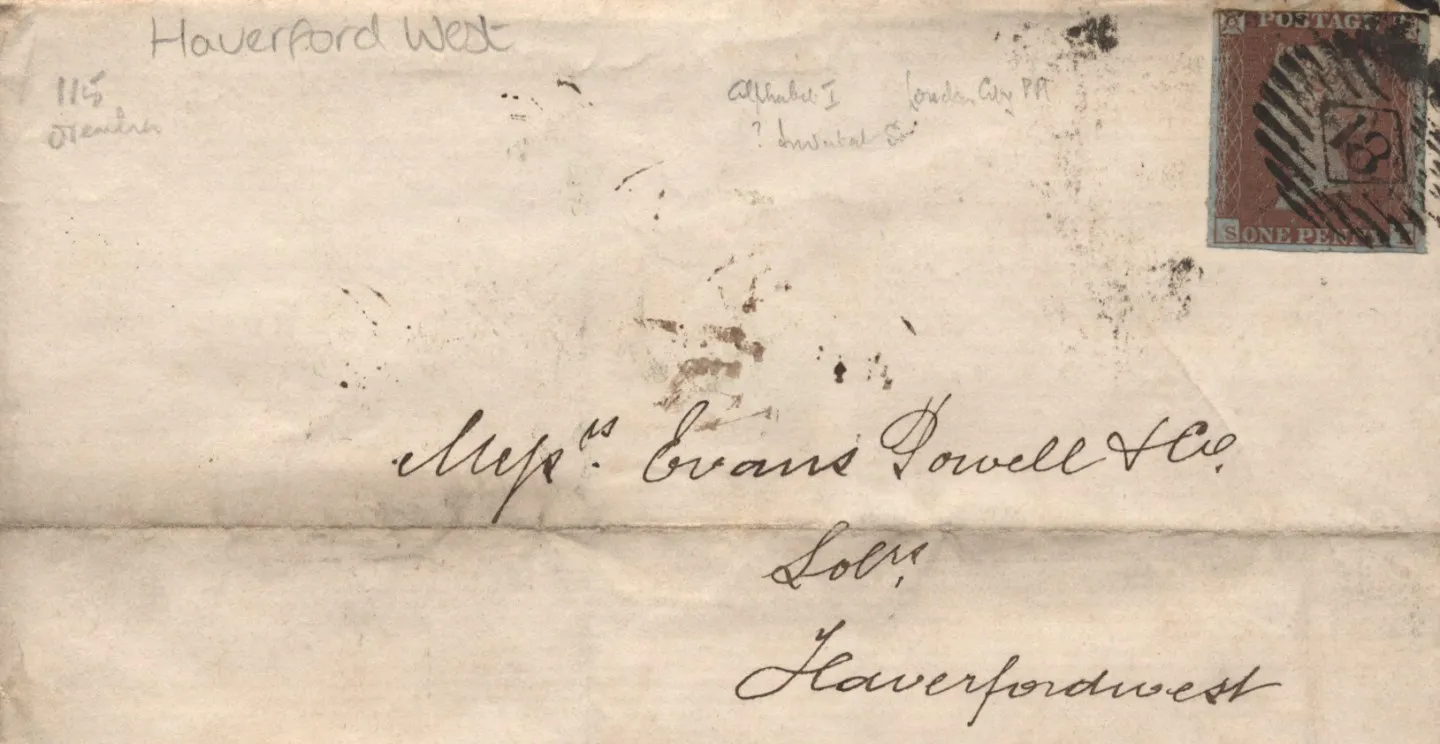 Haverford West
115
Alphabet I London City
?
POSTAGE
18
S ONE PENNY
Messrs. Evans Powell & Co.
Solrs,
Haverfordwest